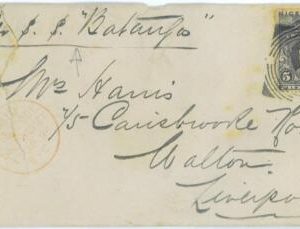 S. S. "Batanga"
Mrs Harris
75 Carisbrooke Ro
Walton
Liverpo